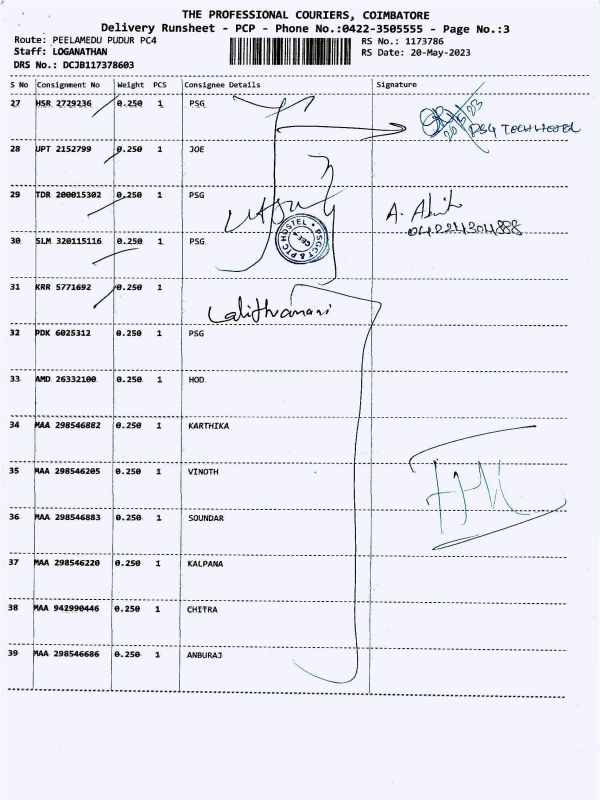 THE PROFESSIONAL COURIERS, COIMBATORE
Delivery Runsheet - PCP - Phone No.:0422-3505555 - Page No.:3
Route: PEELAMEDU PUDUR PC4 RS No.: 1173786
Staff: LOGANATHAN RS Date: 20-May-2023
DRS No.: DCJB117378603
S No Consignment No Weight PCS Consignee Details Signature
27 HSR 2729236 0.250 1 PSG
PSG TECH HOSTEL
28 UPT 2152799 0.250 1 JOE
29 TDR 200015302 0.250 1 PSG
A.
04224304888
PSGCT & PTC HOSTEL
30 SLM 320115116 0.250 1 PSG
31 KRR 5771692 0.250 1
Lalithamani
32 PDK 6025312 0.250 1 PSG
33 AMD 26332100 0.250 1 HOD
34 MAA 298546882 0.250 1 KARTHIKA
35 MAA 298546205 0.250 1 VINOTH
36 MAA 298546883 0.250 1 SOUNDAR
37 MAA 298546220 0.250 1 KALPANA
38 MAA 942990446 0.250 1 CHITRA
39 MAA 298546686 0.250 1 ANBURAJ